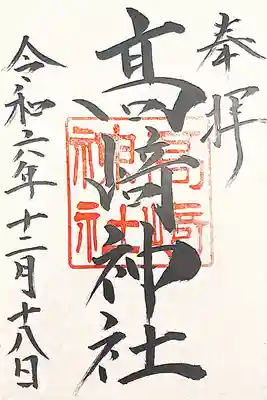 奉拝
髙﨑神社
高崎神社
令和六年十二月十八日